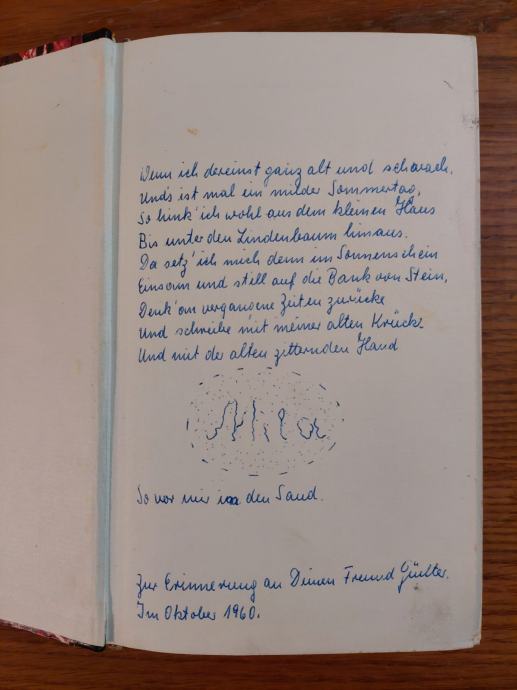 Wenn ich dereinst ganz alt und schwach,
Und's ist mal ein milder Sommertag,
So hink' ich wohl aus dem kleinen Haus
Bis unter den Lindenbaum hinaus.
Da setz' ich mich denn im Sonnenschein
Einsam und still auf die Bank von Stein,
Denk' an vergangene Zeiten zurücke
Und schreibe mit meiner alten Krücke
Und mit der alten zitternden Hand
So vor mir in den Sand.
Zur Erinnerung an Deinen Freund Günter.
Im Oktober 1960.